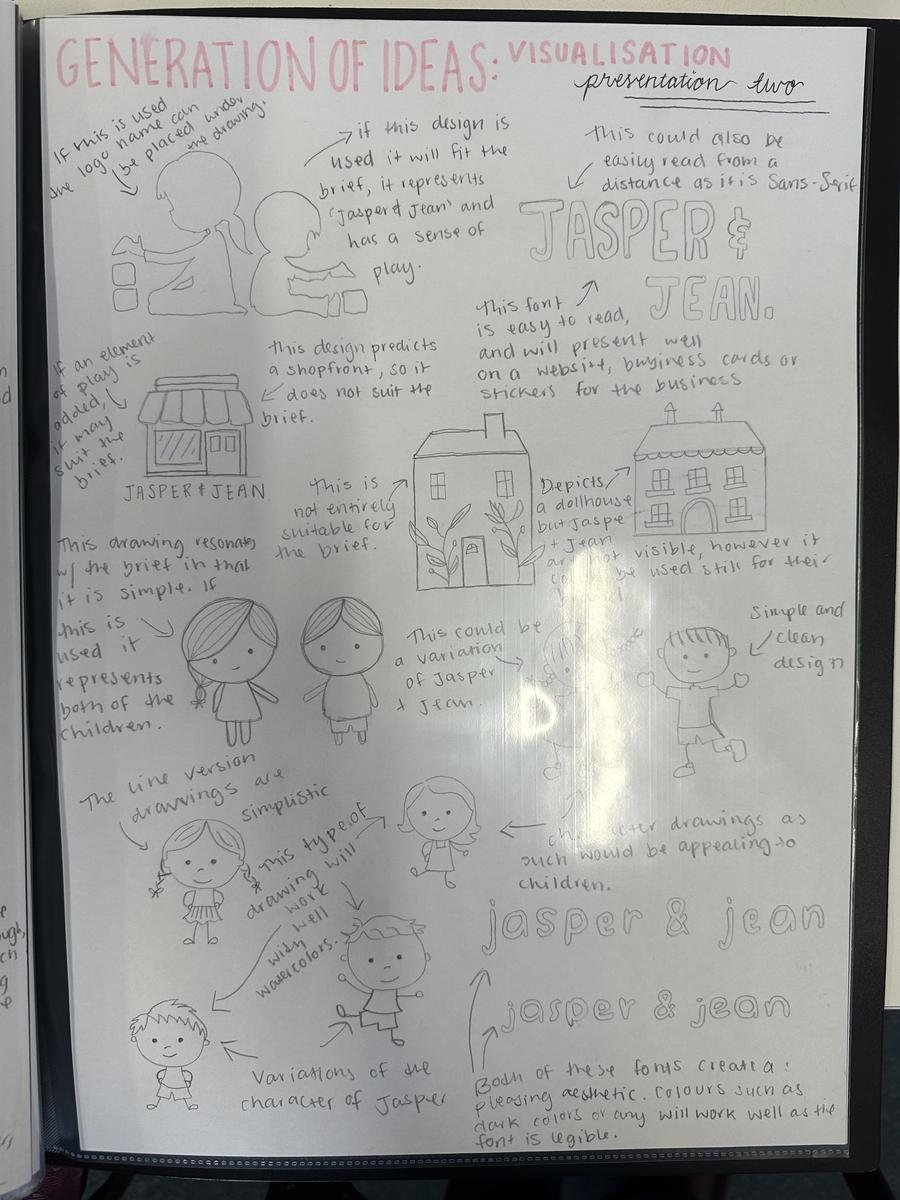 GENERATION OF IDEAS: VISUALISATION
presentation two
If this is used
the logo name can
be placed under
the drawing.
if this design is
used it will fit the
brief, it represents
'Jasper & Jean' and
has a sense of
play.
This could also be
easily read from a
distance as it is Sans-Serif
JASPER &
JEAN.
This font
is easy to read,
and will present well
on a website, business cards or
stickers for the business
If an element
of play is
added,
it may
suit the
brief.
This design predicts
a shopfront, so it
does not suit the
brief.
JASPER & JEAN
This is
not entirely
suitable for
the brief.
Depicts
a dollhouse
but Jaspe
+ Jean
visible, however it
be used still for their
This drawing resonates
w/ the brief in that
it is simple. If
this is
used it
represents
both of the
children.
This could be
a variation
of Jasper
+ Jean.
Simple and
clean
design
The line version
drawings are
simplistic
This type of
drawing will
work
well
with
watercolors.
character drawings as
such would be appealing to
children.
jasper & jean
jasper & jean
Variations of the
character of Jasper
Both of these fonts create a
pleasing aesthetic. Colours such as
dark colors or any will work well as the
font is legible.